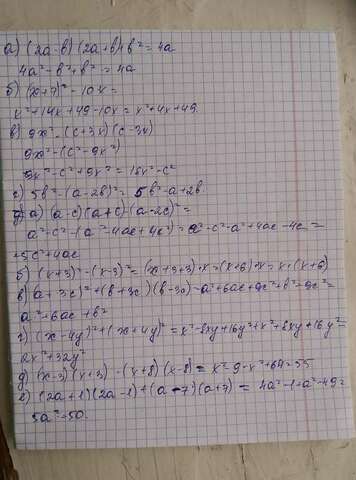 а) (2a-b)(2a+b)+b²=4a
4a²-b²+b²=4a
б) (x+7)²-10x=
x²+14x+49-10x=x²+4x+49.
в) 9x²-(c+3x)(c-3x)
9x²-(c²-9x²)
9x²-c²+9x²=18x²-c²
с) 5b²-(a-2b)²= 5b²-a+2b
а) (a-c)(a+c)-(a-2c)²=
a²-c²-(a²-4ac+4c²)=a²-c²-a²+4ac-4c=
-5c²+4ac
б) (x+3)²-(x-3)²=(x+3+3)·x=(x+6)·x=x·(x+6)
в) (a+3c)²+(b+3c)(b-3c)=a²+6ac+9c²+b²-9c²=
a²+6ac+b²
г) (x-4y)²+(x+4y)²=x²-8xy+16y²+x²+8xy+16y²=
2x²+32y²
д) (x-3)(x+3)-(x+8)(x-8)=x²-9-x²+64=55
е) (2a+1)(2a-1)+(a-7)(a+7)=4a²-1+a²-49=
5a²-50.